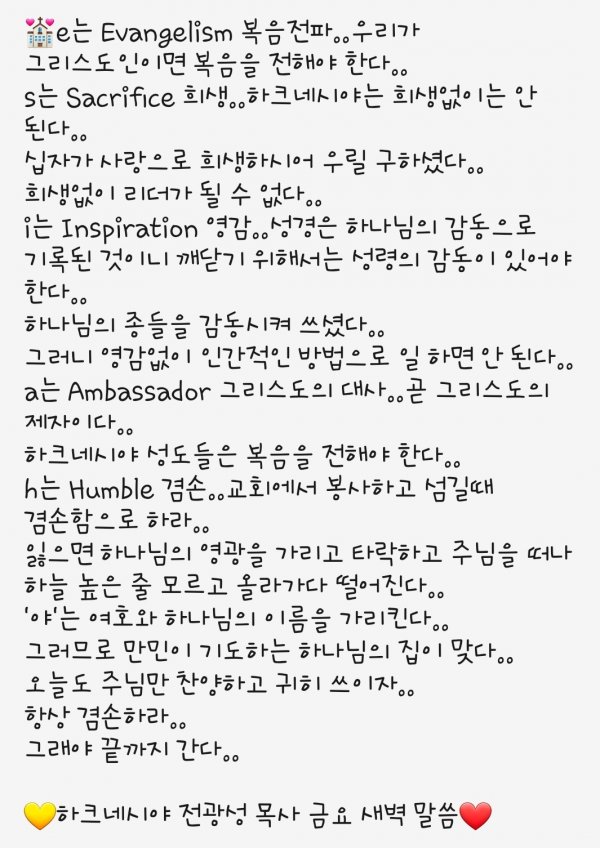 💒e는 Evangelism 복음전파..우리가
그리스도인이면 복음을 전해야 한다..
s는 Sacrifice 희생..하크네시야는 희생없이는 안
된다..
십자가 사랑으로 희생하시어 우릴 구하셨다..
희생없이 리더가 될 수 없다..
i는 Inspiration 영감..성경은 하나님의 감동으로
기록된 것이니 깨닫기 위해서는 성령의 감동이 있어야
한다..
하나님의 종들을 감동시켜 쓰셨다..
그러니 영감없이 인간적인 방법으로 일 하면 안 된다..
a는 Ambassador 그리스도의 대사..곧 그리스도의
제자이다..
하크네시야 성도들은 복음을 전해야 한다..
h는 Humble 겸손..교회에서 봉사하고 섬길때
겸손함으로 하라..
잃으면 하나님의 영광을 가리고 타락하고 주님을 떠나
하늘 높은 줄 모르고 올라가다 떨어진다..
'야'는 여호와 하나님의 이름을 가리킨다..
그러므로 만민이 기도하는 하나님의 집이 맞다..
오늘도 주님만 찬양하고 귀히 쓰이자..
항상 겸손하라..
그래야 끝까지 간다..
💛하크네시야 전광성 목사 금요 새벽 말씀❤️